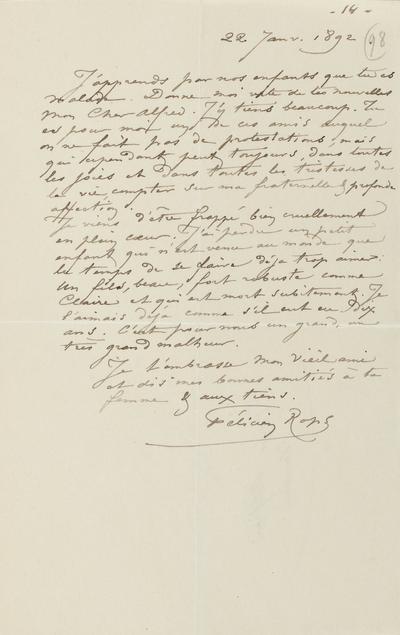 - 14 -
22 Janv. 1892
98
J'apprends par nos enfants que tu es
malade. Donne moi vite de tes nouvelles
mon cher Alfred. J'y tiens beaucoup. Tu
es pour moi un de ces amis auquel
on ne fait pas de protestations, mais
qui cependant peut toujours, dans toutes
les joies et dans toutes les tristesses de
la vie, compter sur ma fraternelle & profonde
affection.
Je viens d'être frappé bien cruellement
en plein cœur, j'ai perdu un petit
enfant qui n'est venu au monde que
le temps de se faire déjà trop aimer.
Un fils, beau, fort robuste comme
Claire et qui est mort subitement. Je
l'aimais déjà comme s'il eut eu dix
ans. C'est pour nous un grand, un
très grand malheur.
Je t'embrasse mon vieil ami
et dis mes bonnes amitiés à ta
femme & aux tiens.
Félicien Rops